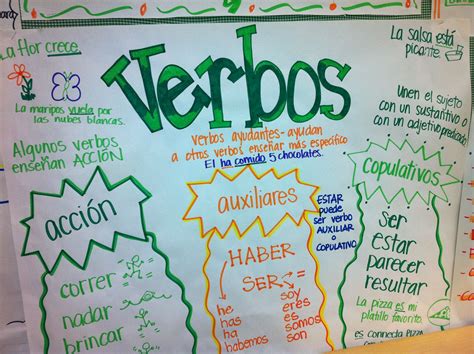 Verbos
La flor crece.
La maripos vuela por
las nubes blancas.
Algunos verbos
enseñan ACCIÓN
acción
correr
nadar
brincar
verbos ayudantes-ayudan
a otros verbos enseñar más específico
El ha comido 5 chocolates.
auxiliares
HABER
SER=
he
has
ha
habemos
soy
eres
es
somos
son
ESTAR
puede
ser verbo
AUXILIAR
o
COPULATIVO
La salsa está
picante.
Unen el sujeto
con un sustantivo o
con un adjetivo predicado
copulativos
ser
estar
parecer
resultar
La pizza es mi
platillo favorito.
es connecta PIZZA